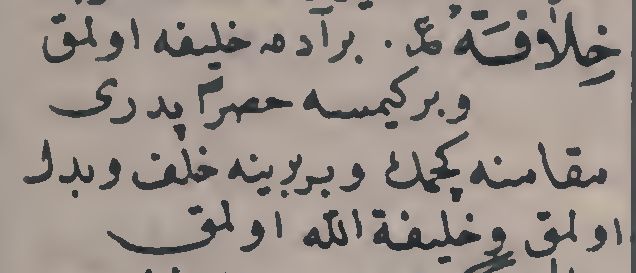 خِلَافَةُ بر آدمه خليفه اولمق
وبر كيمسه حصرا پدرى
مقامنه كچمك وبربرينه خلف وبدل
اولمق وخليفة الله اولمق